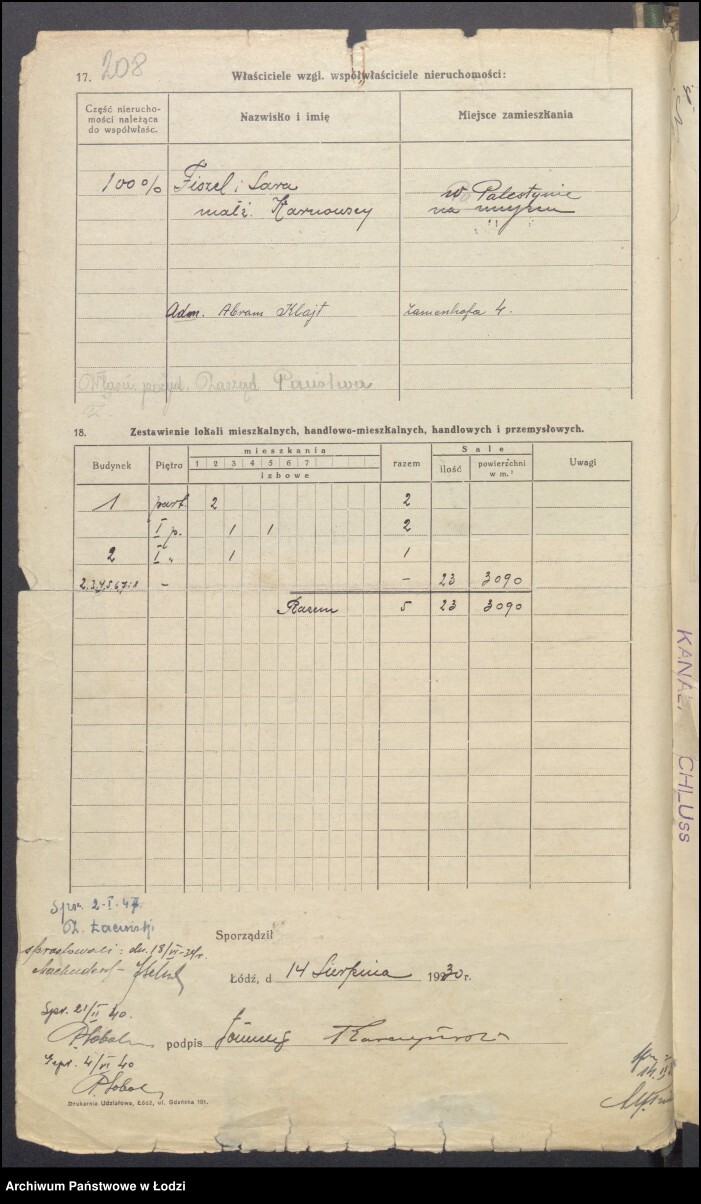 208
17. Właściciele wzgl. współwłaściciele nieruchomości:
Część nierucho-
mości należąca
do współwłaśc.
Nazwisko i imię
Miejsce zamieszkania
100% Fiszel i Sara w Palestynie
małż. Karnowscy na
Adm. Abram Klajt Zamenhofa 4.
Zarząd Państwa
18. Zestawienie lokali mieszkalnych, handlowo-mieszkalnych, handlowych i przemysłowych.
Budynek Piętro mieszkania razem Sale Uwagi
1 2 3 4 5 6 7
izbowe
ilość powierzchni w m.²
1 part. 2 2
I p. 1 1 2
2 I „ 1 1
2.3.4.5.6.7.i 8 – – 23 3090
Razem 5 23 3090
Spr. 2-I-47.
Sporządził
Łódź, d 14 Sierpnia 1930 r.
Spr. 21/II 40.
podpis
4/VI 40
Drukarnia Udziałowa, Łódź, ul. Gdańska 101.
KANAL. CHLUSS
Archiwum Państwowe w Łodzi